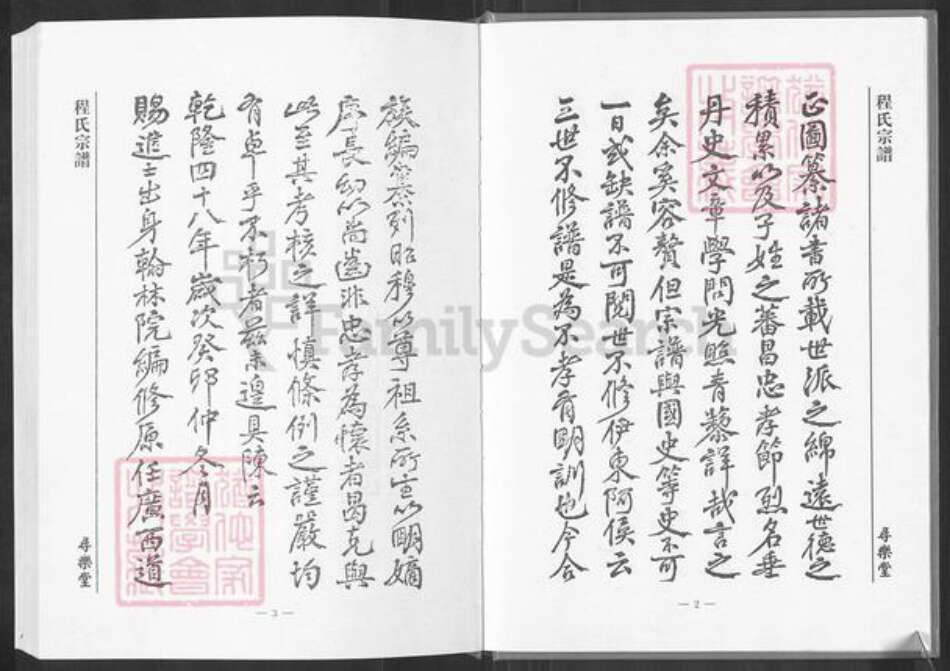 程氏宗譜
正圖纂諸書所載世派之綿遠世德之
積累以及子姓之蕃昌忠孝節烈名垂
丹史文章學問光照青藜詳哉言之
矣余奚容贅但宗譜與國史等史不可
一日或缺譜不可閱世不修伊東阿侯云
三世不修譜是為不孝有明訓也今合
尋樂堂
— 2 —
程氏宗譜
族編纂列昭穆以尊祖系所宜以明嫡
庶長幼以尚齒非忠孝為懷者曷克與
此至其考核之詳慎條例之謹嚴均
有卓乎不朽者茲未遑具陳云
乾隆四十八年歲次癸卯仲冬月
賜進士出身翰林院編修原任廣西道
尋樂堂
— 3 —
FamilySearch